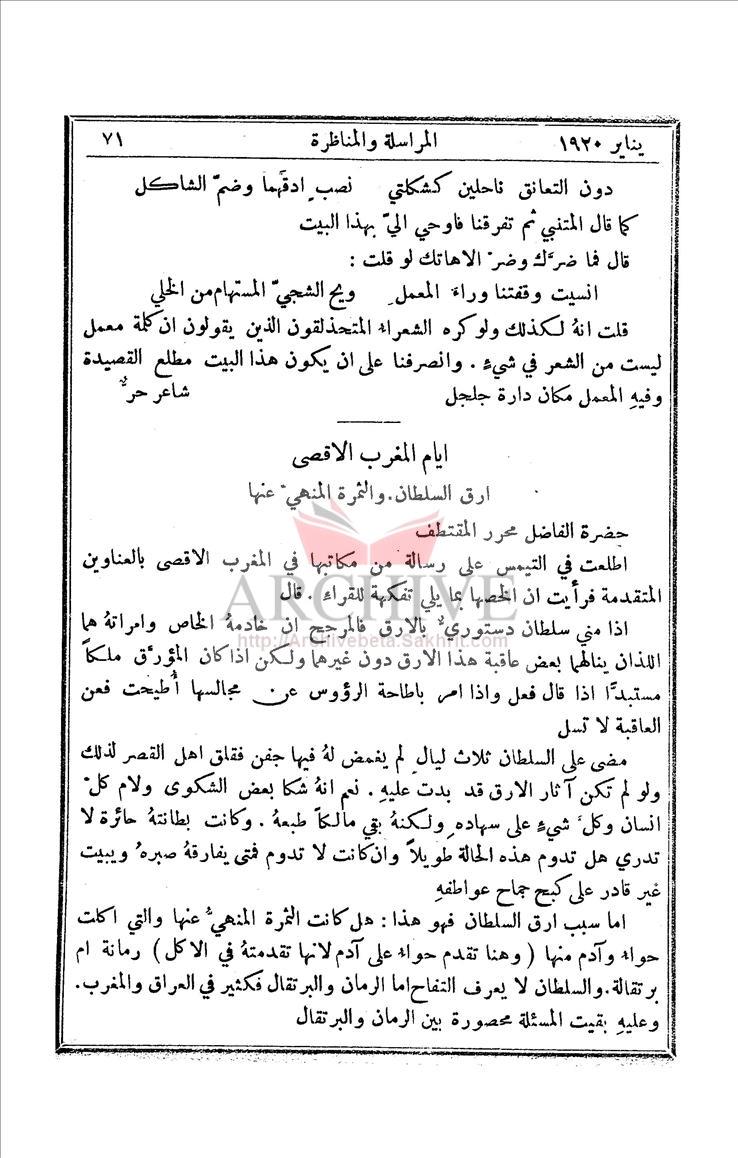 يناير ١٩٢٠ المراسلة والمناظرة ٧١
دون التعانق ناحلين كشكلتي نصبٍ ادقَّهما وضمّ الشاكل
كما قال المتنبي ثم تفرقنا فاوحي اليّ بهذا البيت
قال فما ضرَّك وضرّ الاهاتك لو قلت :
انسيت وقفتنا وراءَ المعملِ ويح الشجيّ المستهام من الخلي
قلت انهُ لكذلك ولو كره الشعراء المتحذلقون الذين يقولون ان كلمة معمل
ليست من الشعر في شيءٍ . وانصرفنا على ان يكون هذا البيت مطلع القصيدة
وفيهِ المعمل مكان دارة جلجل شاعر حرٌّ
ايام المغرب الاقصى
ارق السلطان.والثمرة المنهيّ عنها
حضرة الفاضل محرر المقتطف
اطلعت في التيمس على رسالة من مكاتبها في المغرب الاقصى بالعناوين
المتقدمة فرأيت ان الخصها بما يلي تفكهة للقراء . قال
ARCHIVE
اذا مني سلطان دستوريٌّ بالارق فالمرجح ان خادمهُ الخاص وامراتهُ هما
http://Archivebeta.Sakhrit.com
اللذان ينالهما بعض عاقبة هذا الارق دون غيرهما ولكن اذا كان المؤرَّق ملكاً
مستبدًّا اذا قال فعل واذا امر باطاحة الرؤوس عن مجالسها أُطيحت فعن
العاقبة لا تسل
مضى على السلطان ثلاث ليالٍ لم يغمض لهُ فيها جفن فقلق اهل القصر لذلك
ولو لم تكن آثار الارق قد بدت عليهِ . نعم انهُ شكا بعض الشكوى ولام كلّ
انسان وكلَّ شيءٍ على سهاده ولكنهُ بقي مالكاً طبعهُ . وكانت بطانتهُ حائرة لا
تدري هل تدوم هذه الحالة طويلاً وان كانت لا تدوم فمتى يفارقهُ صبرهُ ويبيت
غير قادر على كبح جماح عواطفهِ
اما سبب ارق السلطان فهو هذا : هل كانت الثمرة المنهيُّ عنها والتي اكلت
حواء وآدم منها ( وهنا تقدم حواء على آدم لانها تقدمتهُ في الاكل ) رمانة ام
برتقالة.والسلطان لا يعرف التفاح اما الرمان والبرتقال فكثير في العراق والمغرب.
وعليهِ بقيت المسئلة محصورة بين الرمان والبرتقال